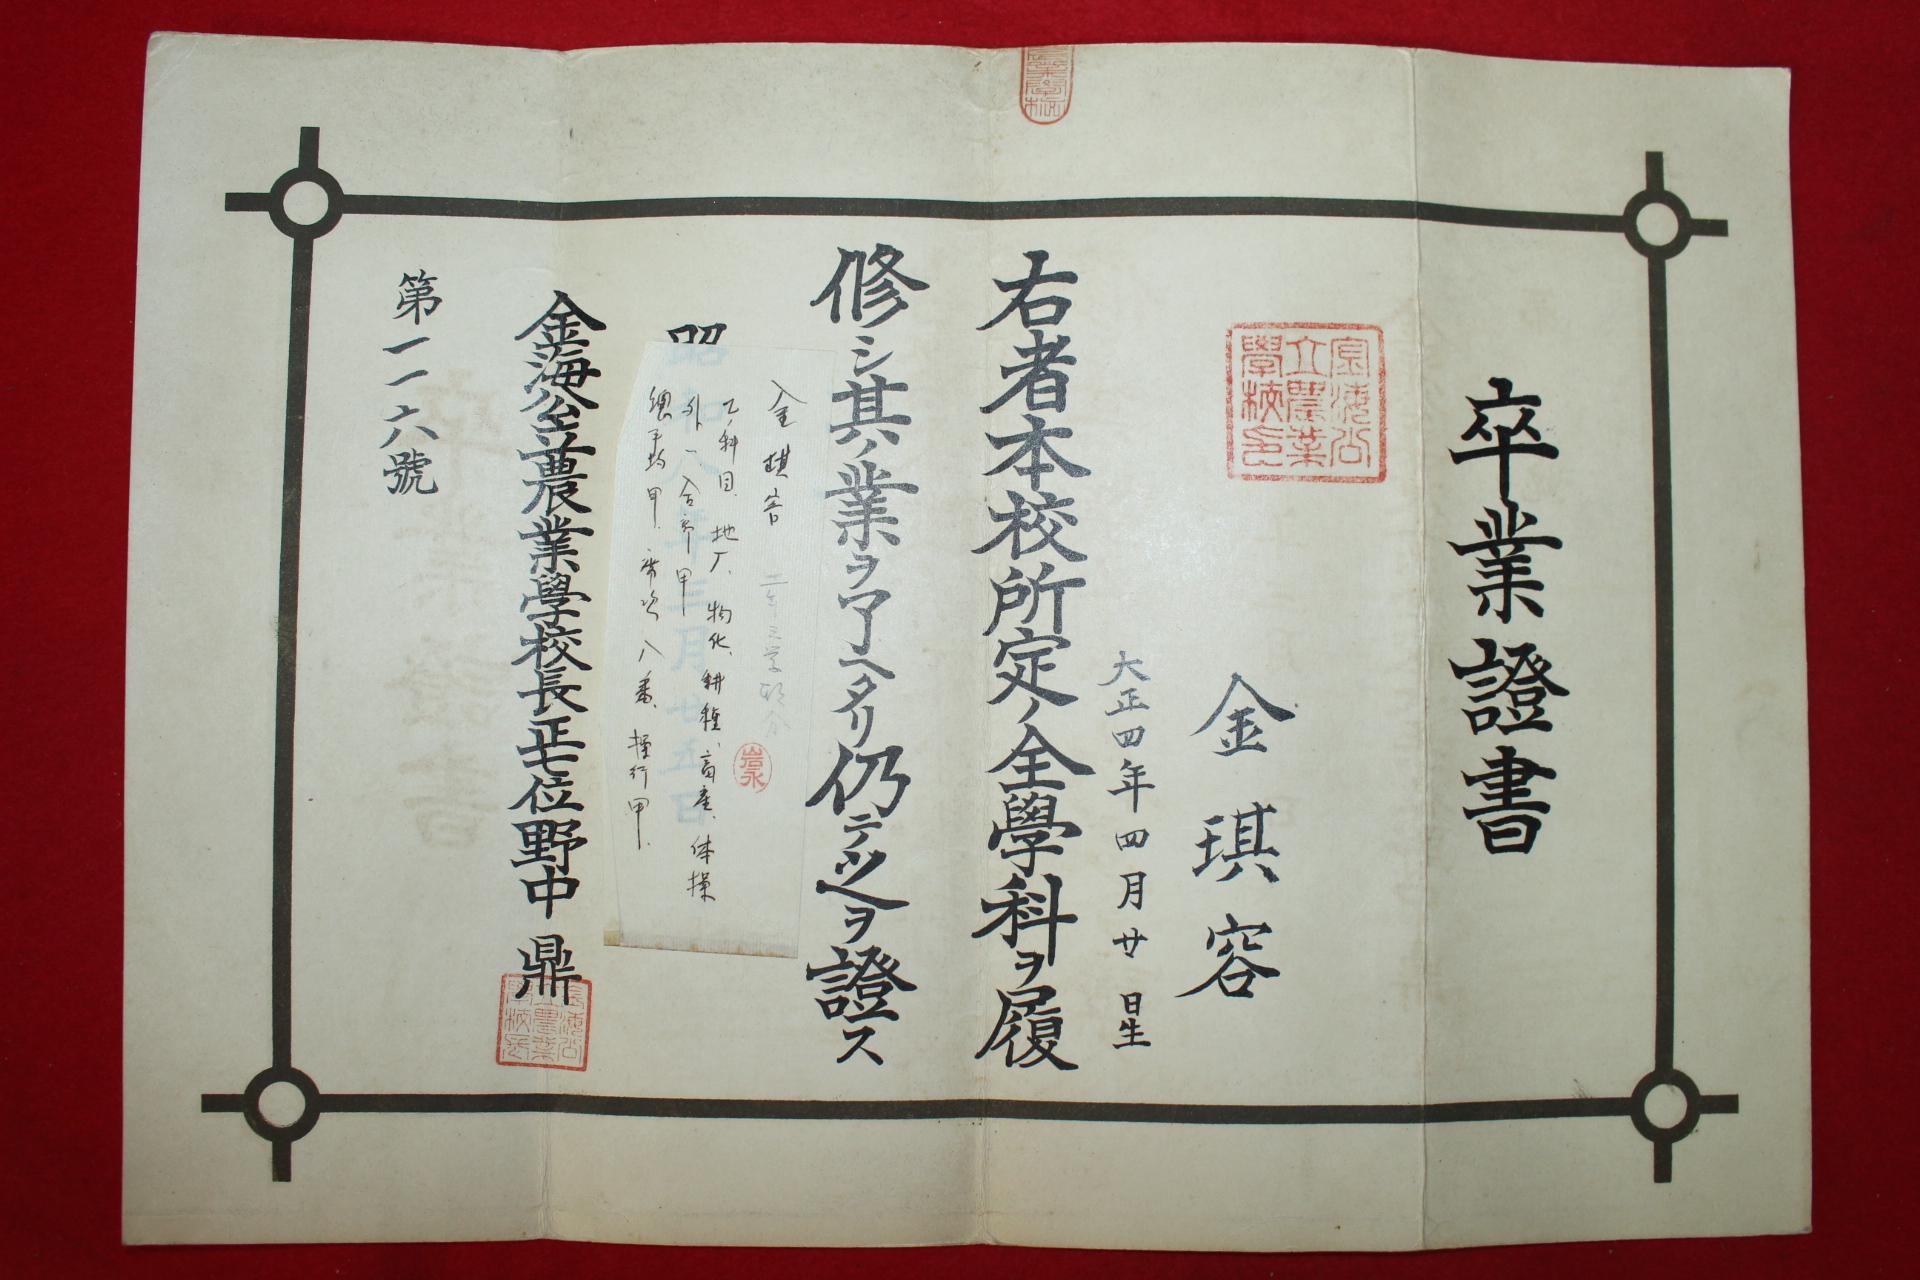 卒業證書
金海公
立農業
學校印
金琪容
大正四年四月廿日生
右者本校所定ノ全學科ヲ履
修シ其ノ業ヲ了ヘタリ仍テ之ヲ證ス
昭和八年三月廿五日
金海公立農業學校長正七位野中鼎
第一一六號
金琪容 二年三学期分
岩永
乙ノ科目、地厂、物化、耕種、畜産、体操
外一ハ合卆甲
總平均甲、席次八番、操行甲、